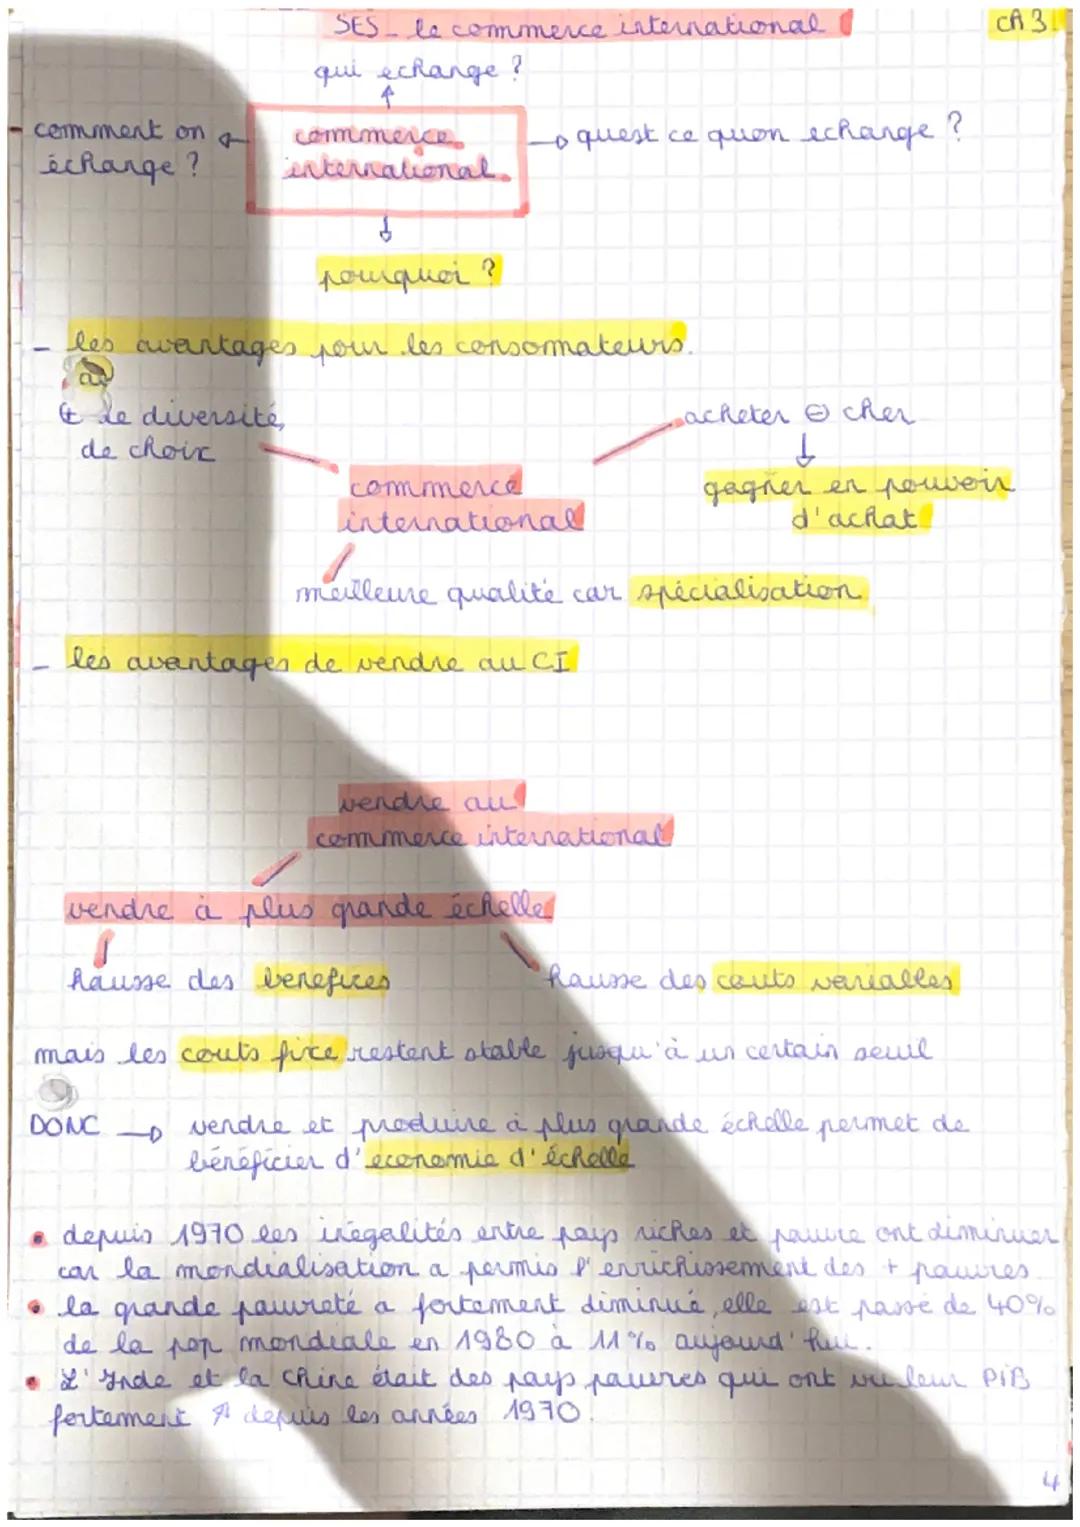 SES - le commerce international
CH 3.
qui echange ?
comment on
échange ?
commerce
international.
quest ce quon echange ?
pourquoi ?
- les avantages pour les consomateurs.
⊕ de diversité,
de choix
acheter ⊖ cher
gagner en pouvoir
d'achat
commerce
international
meilleure qualité car spécialisation.
- les avantages de vendre au CI
vendre au
commerce international
vendre à plus grande échelle
hausse des benefices
hausse des couts variables
mais les couts fixe restent stable jusqu'à un certain seuil
DONC → vendre et produire à plus grande échelle permet de
bénéficier d'economie d'échelle
• depuis 1970 les inégalités entre pays riches et pauvre ont diminuer
car la mondialisation a permis l'enrichissement des + pauvres.
• la grande pauvreté a fortement diminué, elle est passé de 40%
de la pop mondiale en 1980 à 11% aujourd'hui.
• L'Inde et la Chine était des pays pauvres qui ont vu leur PIB
fortement ↗ depuis les années 1970.
4